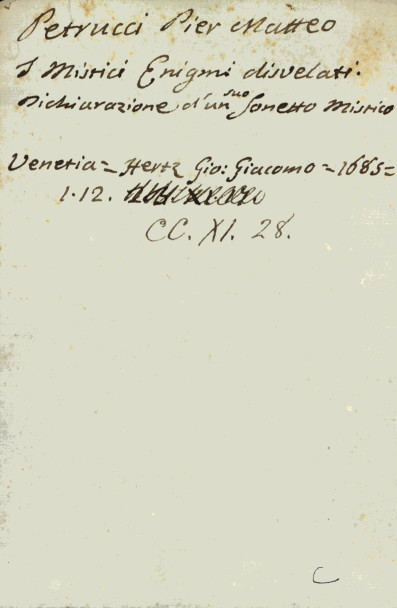 Petrucci Pier Matteo
I Mistici Enigmi disvelati.
Dichiarazione d'un suo sonetto Mistico
Venetia = Hertz Gio: Giacomo = 1685 =
1.12.
CC. XI. 28.
C